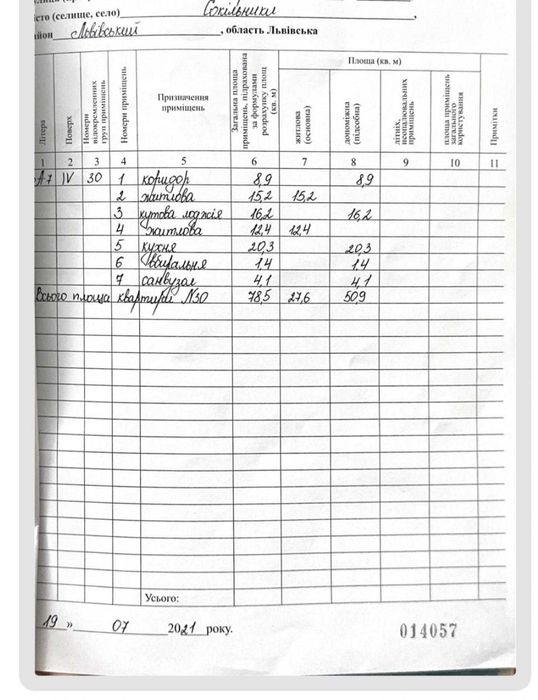 місто (селище, село) Сокільники,
район Львівський, область Львівська
Літера
Поверх
Номери відокремлених груп приміщень
Номери приміщень
Призначення приміщень
Загальна площа приміщень, підрахована за формулами розрахунку площ (кв. м)
Площа (кв. м)
житлова (основна)
допоміжна (підсобна)
літніх, неопалювальних приміщень
площа приміщень загального користування
Примітки
1 2 3 4 5 6 7 8 9 10 11
А7 IV 30 1 коридор 8,9 8,9
2 житлова 15,2 15,2
3 кутова лоджія 16,2 16,2
4 житлова 12,4 12,4
5 кухня 20,3 20,3
6 вбиральня 1,4 1,4
7 санвузол 4,1 4,1
Всього площа квартирі N30 78,5 27,6 50,9
Усього:
19 » 07 2021 року.
014057